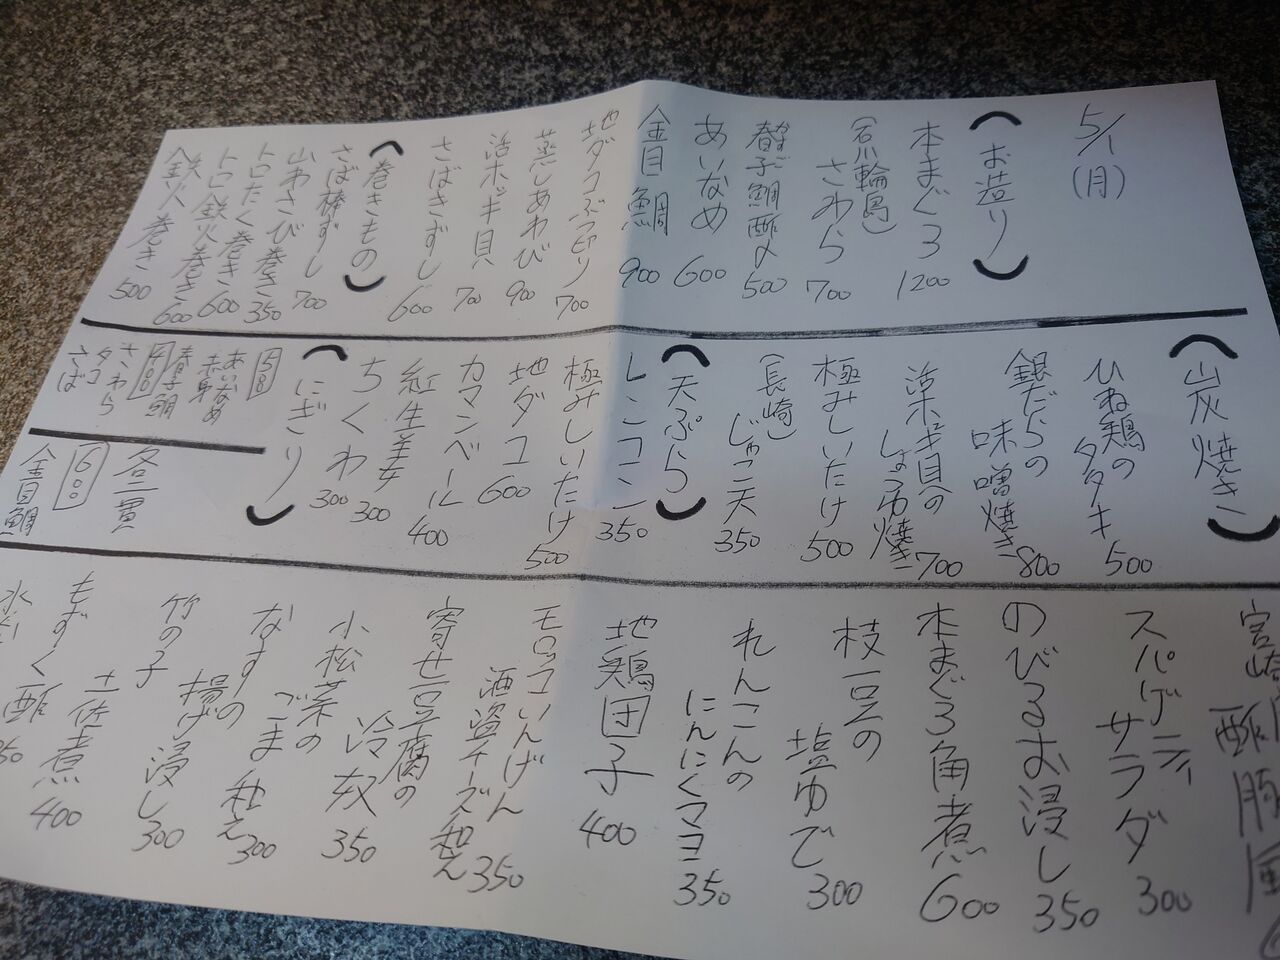 5/1(月)
(お造り)
本まぐろ 1200
(石川輪島)
さわら 700
春子鯛酢〆 500
あいなめ 600
金目鯛 900
地ダコぶつ切り 700
蒸しあわび 900
活ホッキ貝 700
さばきずし 600
(巻きもの)
さば棒ずし 700
山わさび巻き 350
トロたく巻き 600
トロ鉄火巻き 600
鉄火巻き 500
(炭焼き)
ひね鶏の
タタキ 500
銀だらの
味噌焼き 800
活ホッキ貝の
しょうゆ焼き 700
極みしいたけ 500
(長崎)
じゃこ天 350
(天ぷら)
レンコン 350
極みしいたけ 500
地ダコ 600
カマンベール 400
紅生姜 300
ちくわ 300
(にぎり)
あいなめ
赤身
春子鯛
400
さわら
タコ
さば
各二貫
600
金目鯛
宮崎
スパゲティ
サラダ 300
のびるお浸し 350
本まぐろ角煮 600
枝豆の
塩ゆで 300
れんこんの
にんにくマヨ 350
地鶏団子 400
モロッコいんげん
酒盗チーズ和え 350
寄せ豆腐の
冷奴 350
小松菜の
ごま和え 300
なすの
揚げ浸し 300
竹の子
土佐煮 400
もずく酢